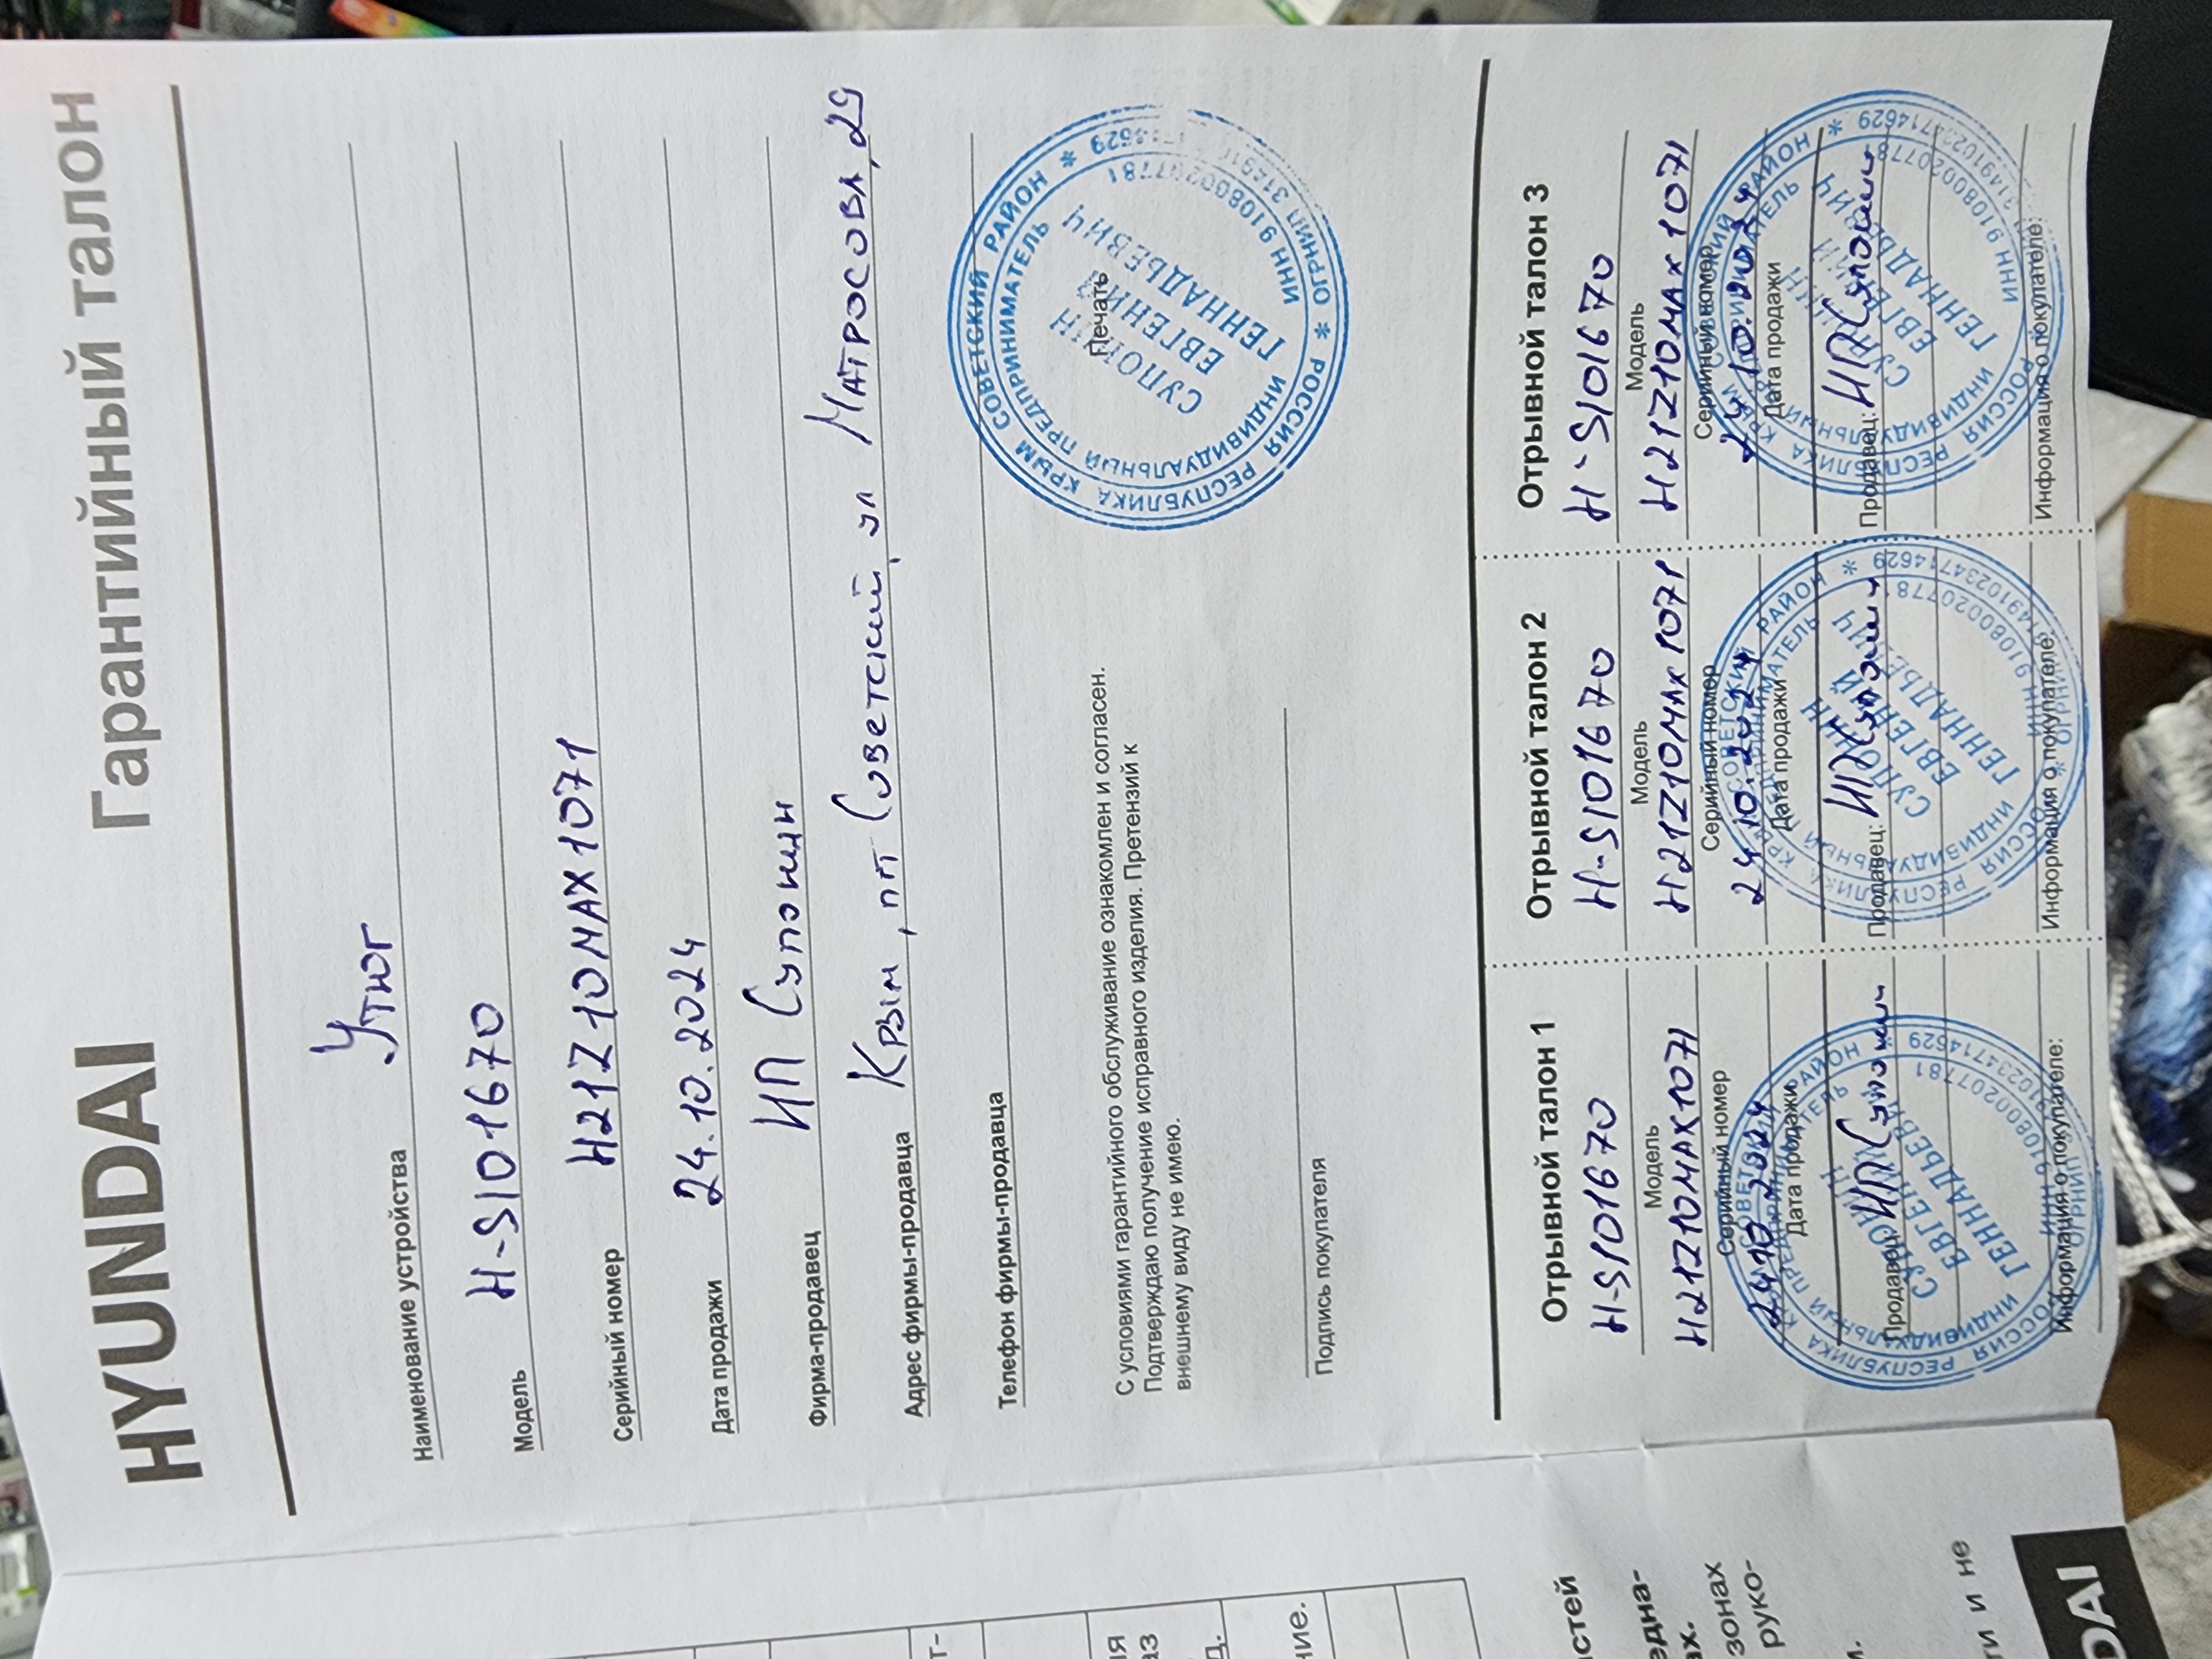 HYUNDAI Гарантийный талон
Утюг
Наименование устройства
H-SI01670
Модель
H21Z10MAX1071
Серийный номер
24.10.2024
Дата продажи
ИП Супонин
Фирма-продавец
Крым, пгт Советский, ул Матросова, 29
Адрес фирмы-продавца
Телефон фирмы-продавца
Печать
РОССИЯ * РЕСПУБЛИКА КРЫМ СОВЕТСКИЙ РАЙОН *
ИНДИВИДУАЛЬНЫЙ ПРЕДПРИНИМАТЕЛЬ
СУПОНИН
ЕВГЕНИЙ
ГЕННАДЬЕВИЧ
ИНН 910800207781
С условиями гарантийного обслуживание ознакомлен и согласен.
Подтверждаю получение исправного изделия. Претензий к
внешнему виду не имею.
Подпись покупателя
Отрывной талон 1
H-SI01670
Модель
H21Z10MAX1071
Серийный номер
24.10.2024
Дата продажи
Продавец: ИП Супонин
Информация о покупателе:
Отрывной талон 2
H-SI01670
Модель
H21Z10MAX1071
Серийный номер
24.10.2024
Дата продажи
Продавец: ИП Супонин
Информация о покупателе:
Отрывной талон 3
H-SI01670
Модель
H21Z10MAX1071
Серийный номер
24.10.2024
Дата продажи
Продавец: ИП Супонин
Информация о покупателе:
зонах
руко-
ти и не
DAI